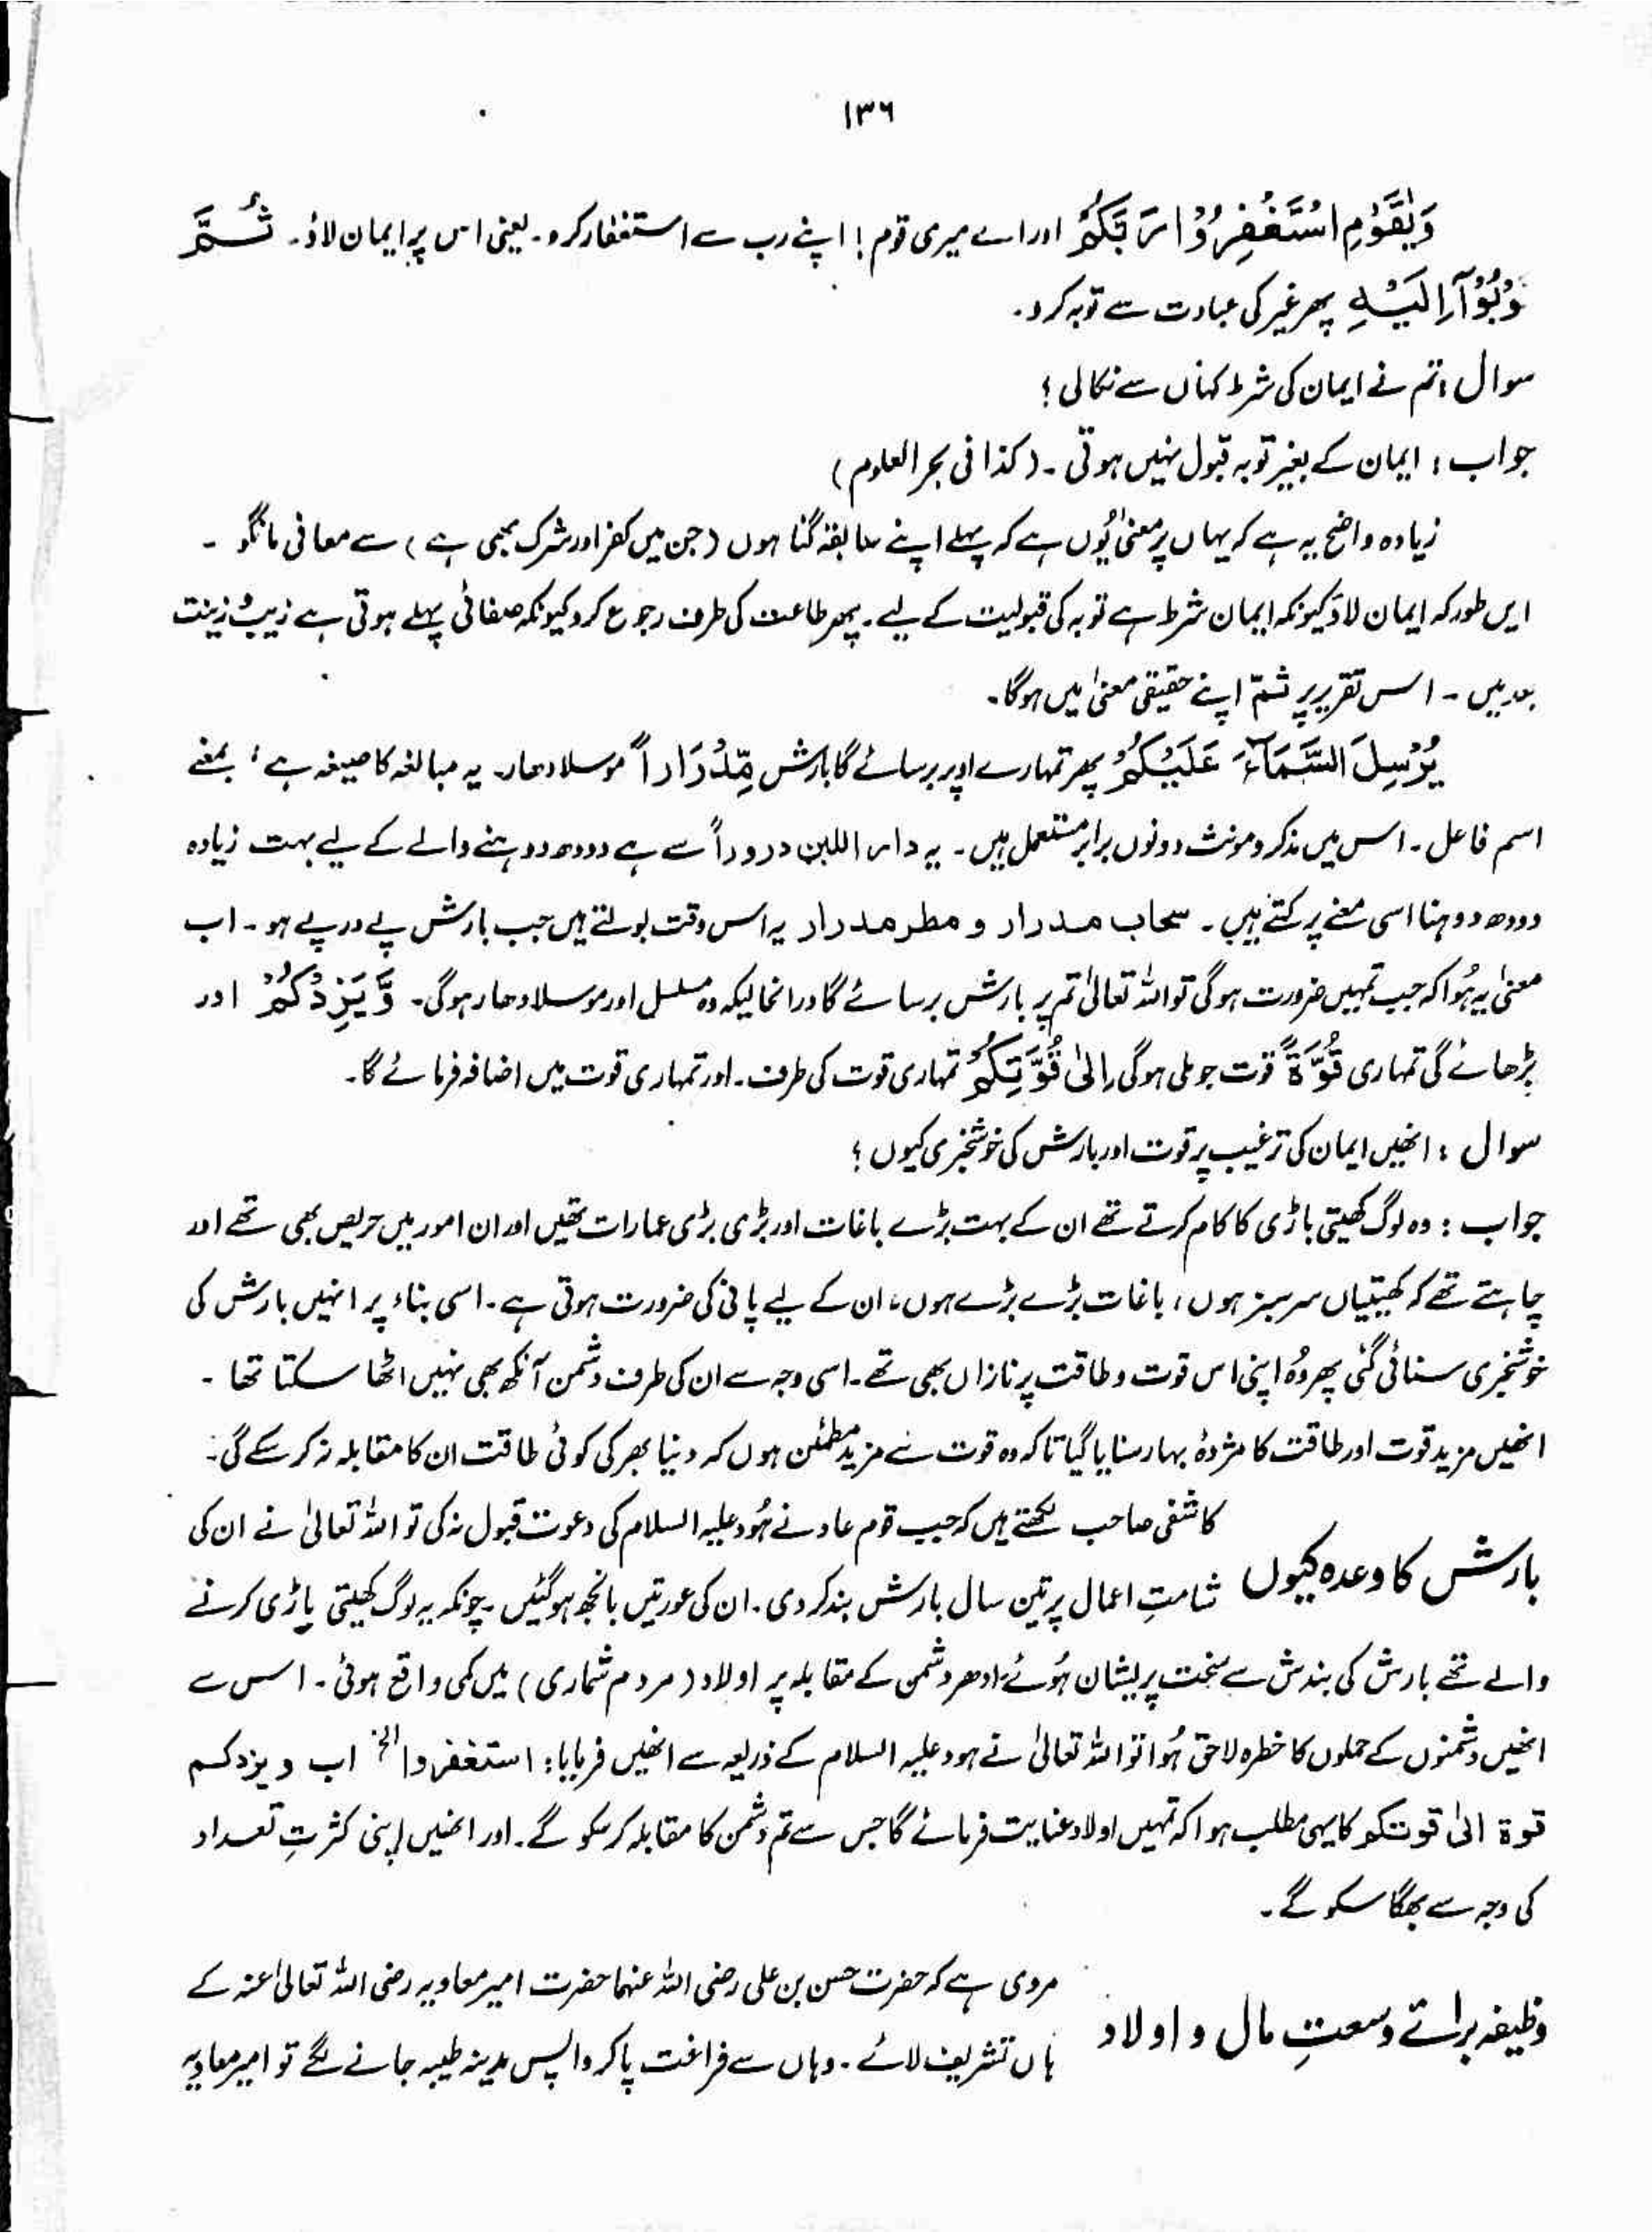 ۱۳۶
وَيٰقَوْمِ اسْتَغْفِرُوْا رَبَّكُمْ اور اے میری قوم! اپنے رب سے استغفار کرو۔ یعنی اس پر ایمان لاؤ۔ ثُمَّ
تُوْبُوْٓا اِلَيْهِ پھر غیر کی عبادت سے توبہ کرو۔
سوال : تم نے ایمان کی شرط کہاں سے نکالی ؟
جواب : ایمان کے بغیر توبہ قبول نہیں ہوتی ۔ (کذا فی بحر العلوم)
زیادہ واضح یہ ہے کہ یہاں پر معنیٰ یُوں ہے کہ پہلے اپنے سابقہ گناہوں (جن میں کفر اور شرک بھی ہے) سے معافی مانگو ۔
ایں طور کہ ایمان لاؤ کیونکہ ایمان شرط ہے توبہ کی قبولیت کے لیے ۔ پھر طاعت کی طرف رجوع کرو کیونکہ صفائی پہلے ہوتی ہے زیب و زینت
بعد میں ۔ اس تقریر پر ثمّ اپنے حقیقی معنیٰ میں ہوگا۔
يُرْسِلَ السَّمَآءَ عَلَيْكُمْ پھر تمہارے اوپر برسائے گا بارش مِّدْرَاراً موسلا دھار۔ یہ مبالغہ کا صیغہ ہے ، بمعنے
اسم فاعل ۔ اس میں مذکر و مونث دونوں برابر مستعمل ہیں ۔ یہ دار اللبن دروراً سے ہے دودھ دوہنے والے کے لیے بہت زیادہ
دودھ دوہنا اسی معنے پر کہتے ہیں ۔ سحاب مدرار و مطر مدرار یہ اس وقت بولتے ہیں جب بارش پے در پے ہو ۔ اب
معنیٰ یہ ہُوا کہ جب تمہیں ضرورت ہوگی تو اللہ تعالیٰ تم پر بارش برسائے گا درانحالیکہ وہ مسلسل اور موسلا دھار ہوگی ۔ وَّيَزِدْكُمْ اور
بڑھائے گی تمہاری قُوَّةً قوت جو ملی ہوگی اِلٰى قُوَّتِكُمْ تمہاری قوت کی طرف ۔ اور تمہاری قوت میں اضافہ فرمائے گا۔
سوال : انھیں ایمان کی ترغیب پر قوت اور بارش کی خوشخبری کیوں ؟
جواب : وہ لوگ کھیتی باڑی کا کام کرتے تھے ان کے بہت بڑے باغات اور بڑی بڑی عمارات تھیں اور ان امور میں حریص بھی تھے اور
چاہتے تھے کہ کھیتیاں سرسبز ہوں ، باغات بڑے بڑے ہوں ، ان کے لیے پانی کی ضرورت ہوتی ہے ۔ اسی بناء پر انہیں بارش کی
خوشخبری سنائی گئی پھر وُہ اپنی اس قوت و طاقت پر نازاں بھی تھے ۔ اسی وجہ سے ان کی طرف دشمن آنکھ بھی نہیں اٹھا سکتا تھا ۔
انھیں مزید قوت اور طاقت کا مژدۂ بہار سنایا گیا تاکہ وہ قوت سے مزید مطمئن ہوں کہ دنیا بھر کی کوئی طاقت ان کا مقابلہ نہ کر سکے گی۔
بارش کا وعدہ کیوں
کاشفی صاحب لکھتے ہیں کہ جب قوم عاد نے ہُود علیہ السلام کی دعوت قبول نہ کی تو اللہ تعالیٰ نے ان کی
شامتِ اعمال پر تین سال بارش بند کر دی ۔ ان کی عورتیں بانجھ ہو گئیں ۔ چونکہ یہ لوگ کھیتی باڑی کرنے
والے تھے بارش کی بندش سے سخت پریشان ہُوئے ، ادھر دشمن کے مقابلہ پر اولاد (مردم شماری) میں کمی واقع ہوئی ۔ اس سے
انھیں دشمنوں کے حملوں کا خطرہ لاحق ہُوا تو اللہ تعالیٰ نے ہود علیہ السلام کے ذریعہ سے انھیں فرمایا : استغفروا الخ اب و یزدکم
قوة الیٰ قوتکم کا یہی مطلب ہوا کہ تمہیں اولاد عنایت فرمائے گا جس سے تم دشمن کا مقابلہ کر سکو گے ۔ اور انھیں اپنی کثرتِ تعداد
کی وجہ سے بھگا سکو گے ۔
وظیفہ برائے وسعتِ مال و اولاد
مروی ہے کہ حضرت حسن بن علی رضی اللہ عنہما حضرت امیر معاویہ رضی اللہ تعالیٰ عنہ کے
ہاں تشریف لائے ۔ وہاں سے فراغت پا کر واپس مدینہ طیبہ جانے لگے تو امیر معاویہ